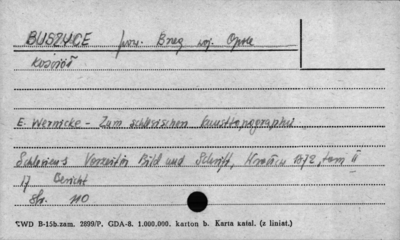 BUSZYCE pow. Brzeg woj. Opole
Kościół
E. Wernicke - Zum schlesischen Kunsttopographie
Schlesiens Vorzeit in Bild und Schrift, 1872, tom II
17 Bericht
str. 110
CWD B-15b.zam. 2899/P. GDA-8. 1.000.000. karton b. Karta katal. (z liniat.)